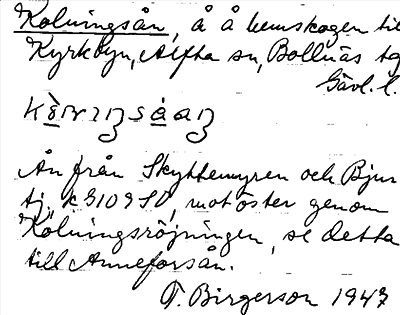 Kölningsån, å å hemskogen til
Kyrkbyn, Alfta sn, Bollnäs tg
Gävl. l.
Ån från Skyttemyren och Bjur
tj. k 3109 SO, mot öster genom
Kölningsröjningen, se detta
till Anneforsån.
T. Birgerson 1947